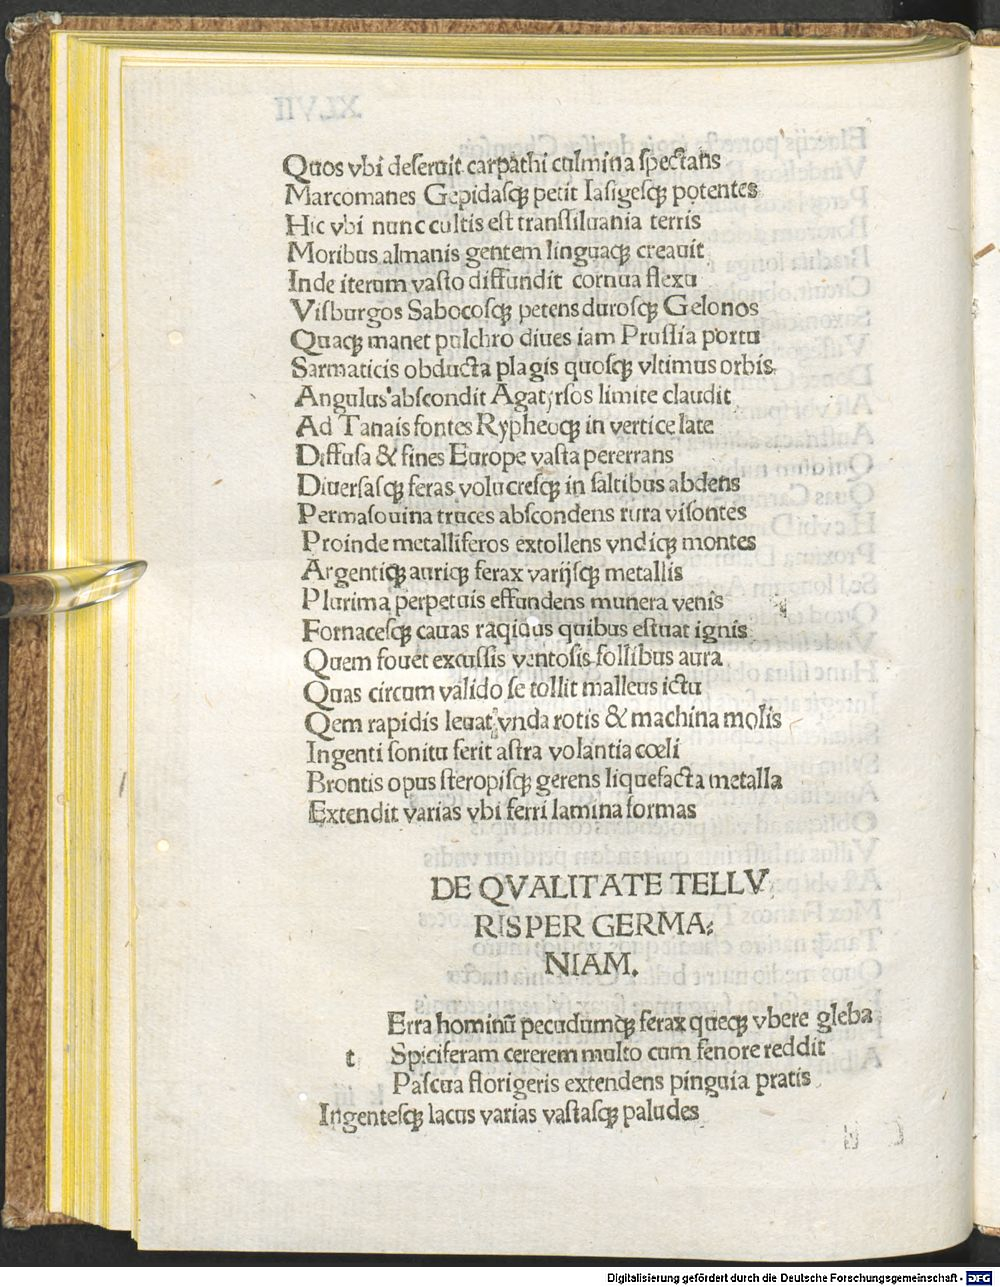 Quos vbi deſeruit carpathi culmina ſpectans
Marcomanes Gepidaſqꝫ petit Iaſigeſqꝫ potentes
Hic vbi nunc cultis eſt tranſſiluania terris
Moribus almanis gentem linguacꝫ creauit
Inde iterum vaſto diffundit cornua flexu
Viſburgos Sabocoſqꝫ petens duroſqꝫ Gelonos
Quacꝫ manet pulchro diues iam Pruſſia portu
Sarmaticis obducta plagis quoſqꝫ vltimus orbis
Angulus abſcondit Agatyrſos limite claudit
Ad Tanais fontes Rypheocꝫ in vertice late
Diffuſa & fines Europe vaſta pererrans
Diuerſaſqꝫ feras volucreſqꝫ in ſaltibus abdens
Permaſouina truces abſcondens rura viſontes
Proinde metalliferos extollens vndiqꝫ montes
Argentiqꝫ auriqꝫ ferax varijſqꝫ metallis
Plurima perpetuis effundens munera venis
Fornaceſqꝫ cauas raqidus quibus eſtuat ignis
Quem fouet excuſſis ventoſis follibus aura
Quas circum valido ſe tollit malleus ictu
Qem rapidis leuat vnda rotis & machina molis
Ingenti ſonitu ferit aſtra volantia cœli
Brontis opus ſteropiſqꝫ gerens liquefacta metalla
Extendit varias vbi ferri lamina formas
DE QVALITATE TELLV
RIS PER GERMA⸗
NIAM.
Erra hominū pecudumqꝫ ferax quecꝫ vbere gleba
t Spiciferam cererem multo cum fenore reddit
Paſcua florigeris extendens pinguia pratis
Ingenteſqꝫ lacus varias vaſtaſqꝫ paludes
Digitalisierung gefördert durch die Deutsche Forschungsgemeinschaft - DFG